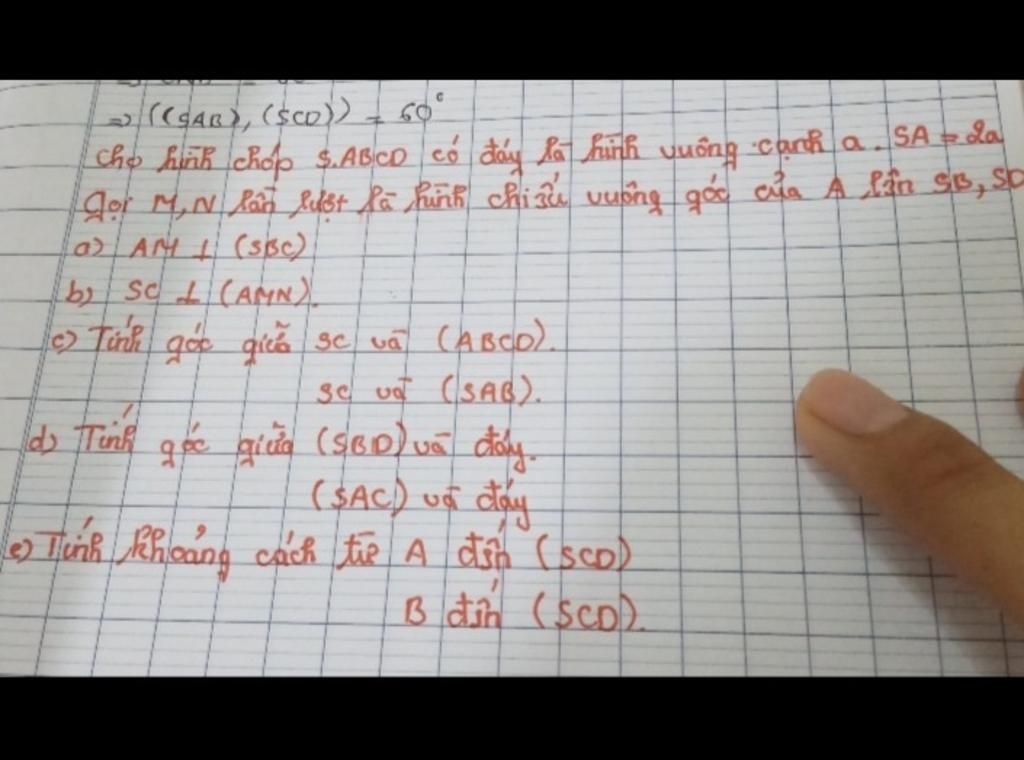 ⇒ ((SAB), (SCD)) = 60°
Cho hình chóp S.ABCD có đáy là hình vuông cạnh a. SA = 2a
Gọi M, N lần lượt là hình chiếu vuông góc của A lên SB, SD
a) AM ⊥ (SBC)
b) SC ⊥ (AMN).
c) Tính góc giữa SC và (ABCD).
SC và (SAB).
d) Tính góc giữa (SBD) và đáy.
(SAC) và đáy
e) Tính khoảng cách từ A đến (SCD)
B đến (SCD).